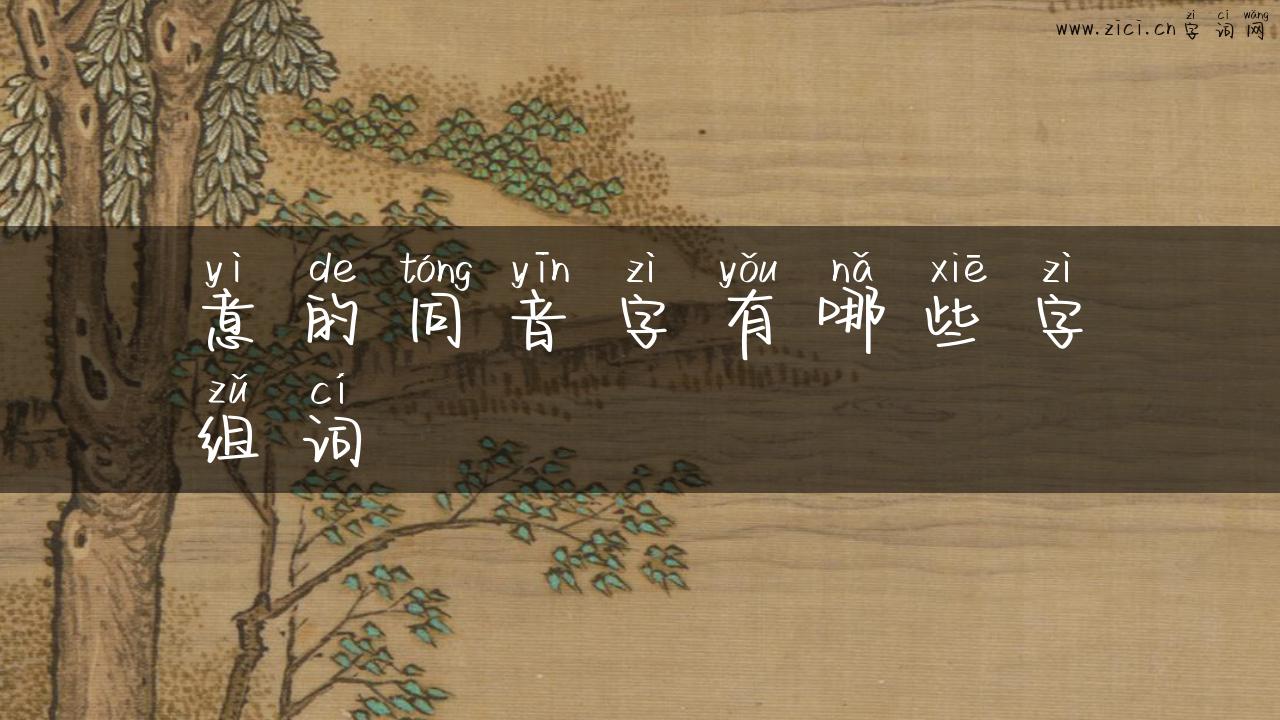 zì cí wǎng
www.zici.cn 字词网
yì de tóng yīn zì yǒu nǎ xiē zì
意的同音字有哪些字
zǔ cí
组词